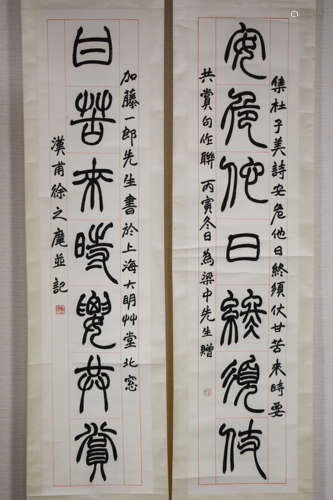 安危他日終須伏
集杜子美詩安危他日終須伏甘苦來時要
共賞句作聯 丙寅冬日為梁中先生贈
甘苦來時要共賞
加藤一郎先生書於上海大明艸堂北窓
漢甫徐之麾並記